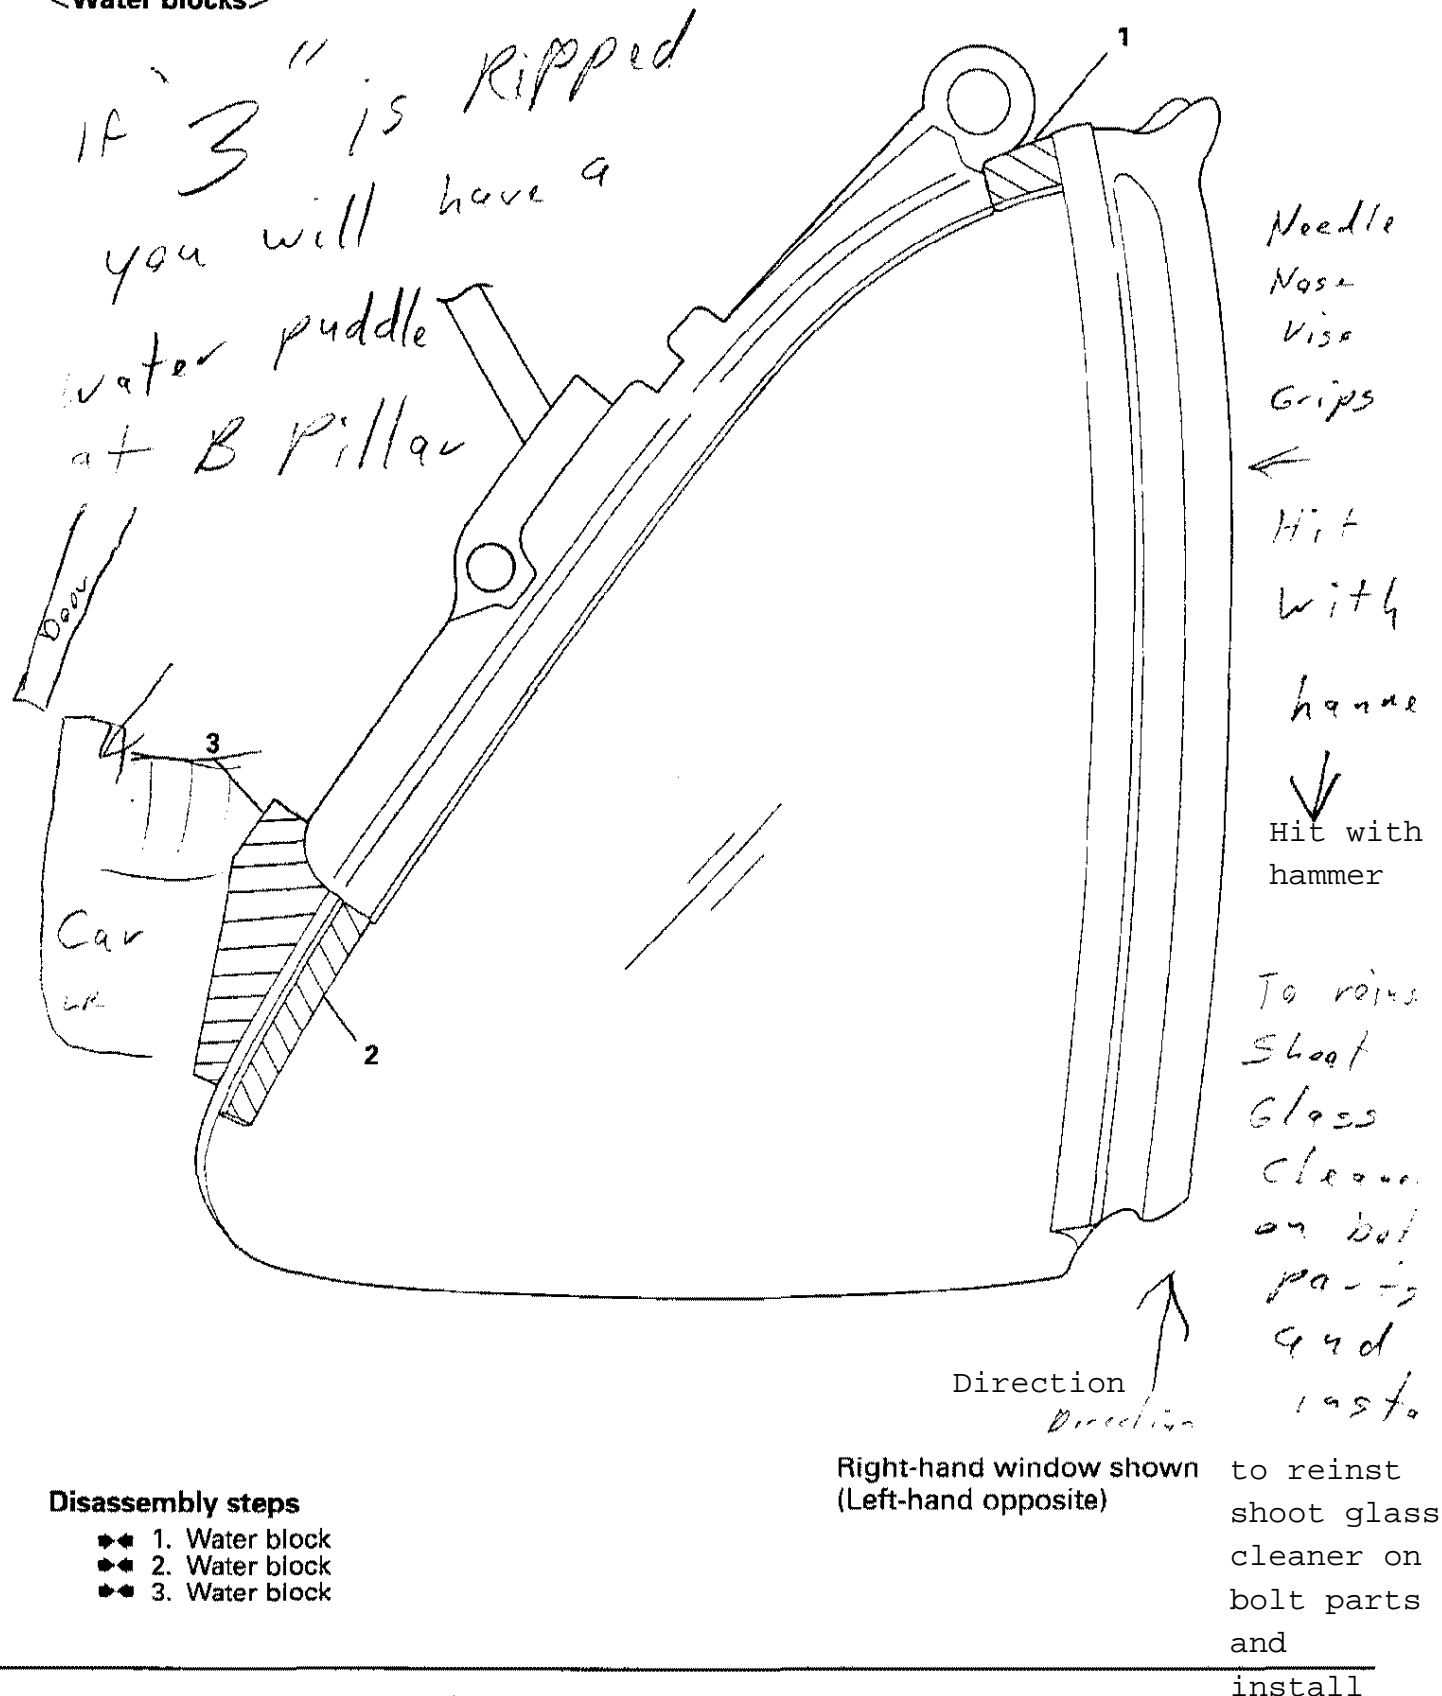 <Water blocks>
If "3" is Ripped
you will have a
water puddle
at B Pillar
Door
Car
LR
1
3
4
2
Needle
Nose
Vise
Grips
Hit
with
hamme
Hit with
hammer
To reins
Shoot
Glass
Cleane
on bot
parts
and
insta
Direction
Direction
Right-hand window shown
(Left-hand opposite)
to reinst
shoot glass
cleaner on
bolt parts
and
install
Disassembly steps
1. Water block
2. Water block
3. Water block